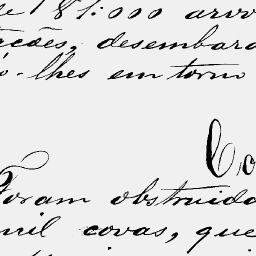 181:000 arvo
ções, desembara
o-lhes em torno
Co
Foram obstruida
mil covas, que